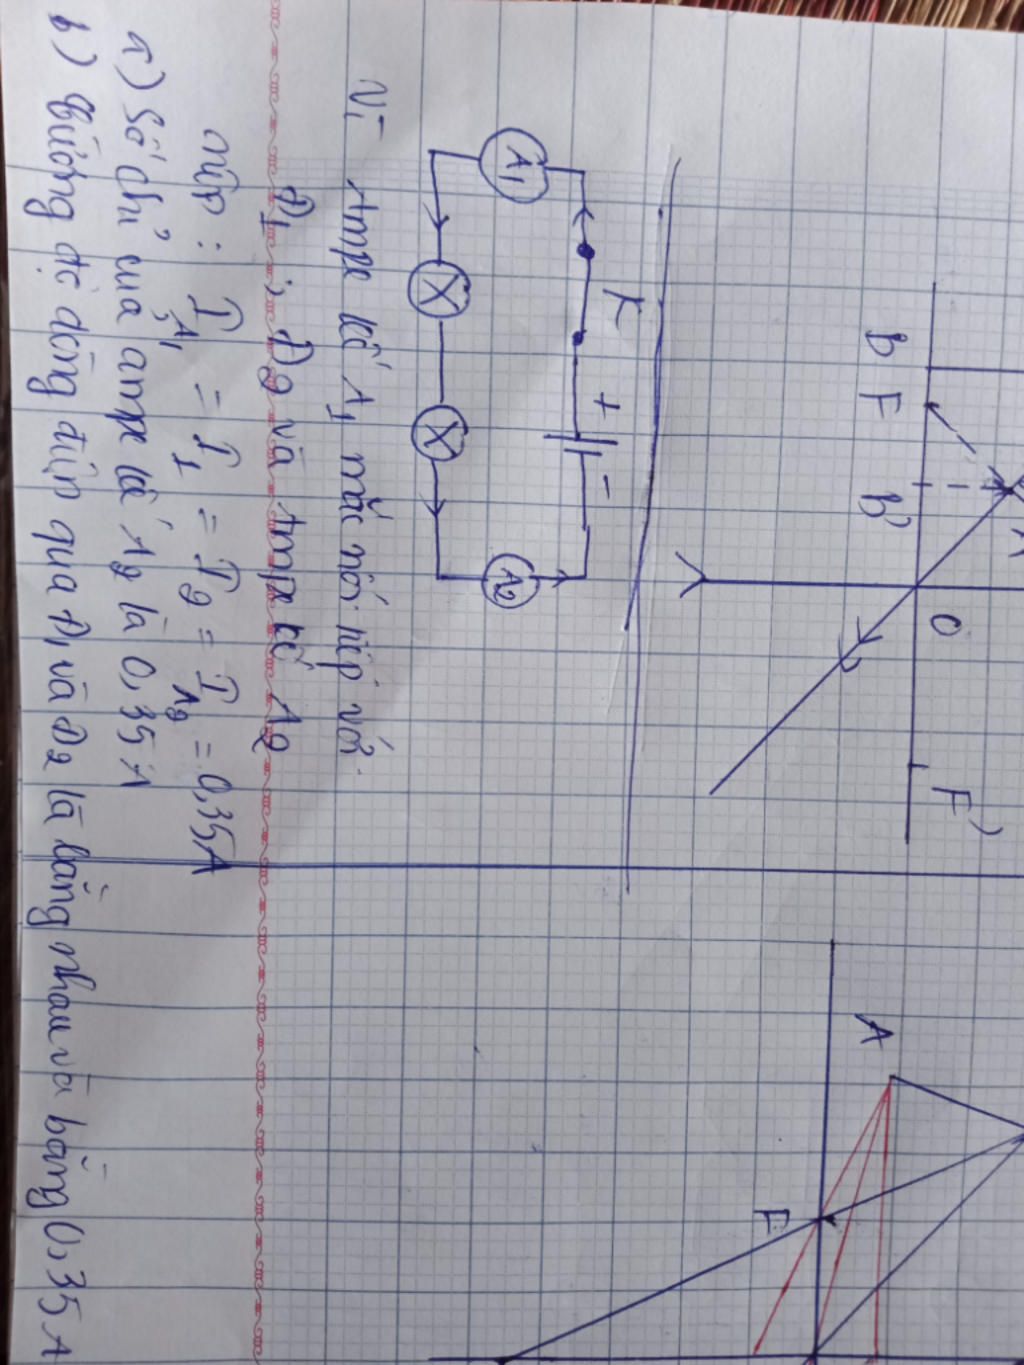 b F B' O F'
A
A
F
K
+ -
A1
A2
Vì Ampe kế A1 mắc nối tiếp với
Đ1, Đ2 và Ampe kế A2
nên: I A1 = I1 = I2 = I A2 = 0,35A
a) Số chỉ của ampe kế A2 là 0,35A
b) Cường độ dòng điện qua Đ1 và Đ2 là bằng nhau và bằng 0,35A